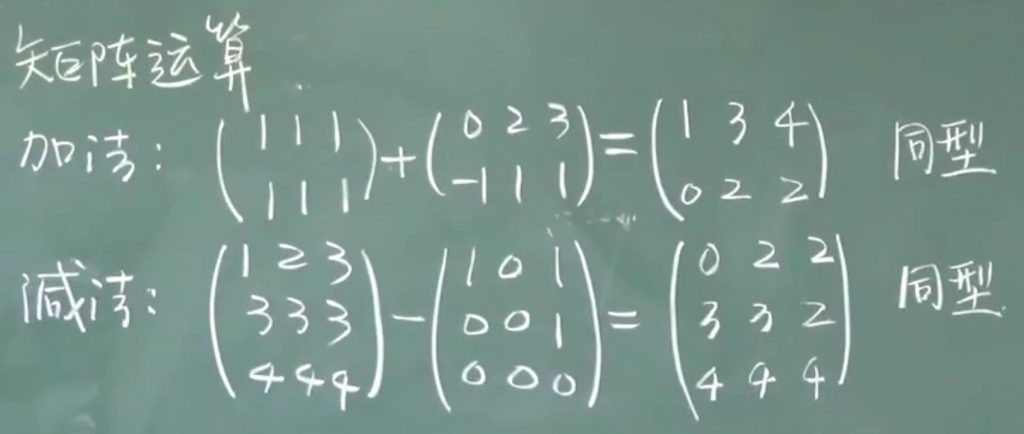 矩阵运算
加法: (1 1 1; 1 1 1) + (0 2 3; -1 1 1) = (1 3 4; 0 2 2) 同型
减法: (1 2 3; 3 3 3; 4 4 4) - (1 0 1; 0 0 1; 0 0 0) = (0 2 2; 3 3 2; 4 4 4) 同型